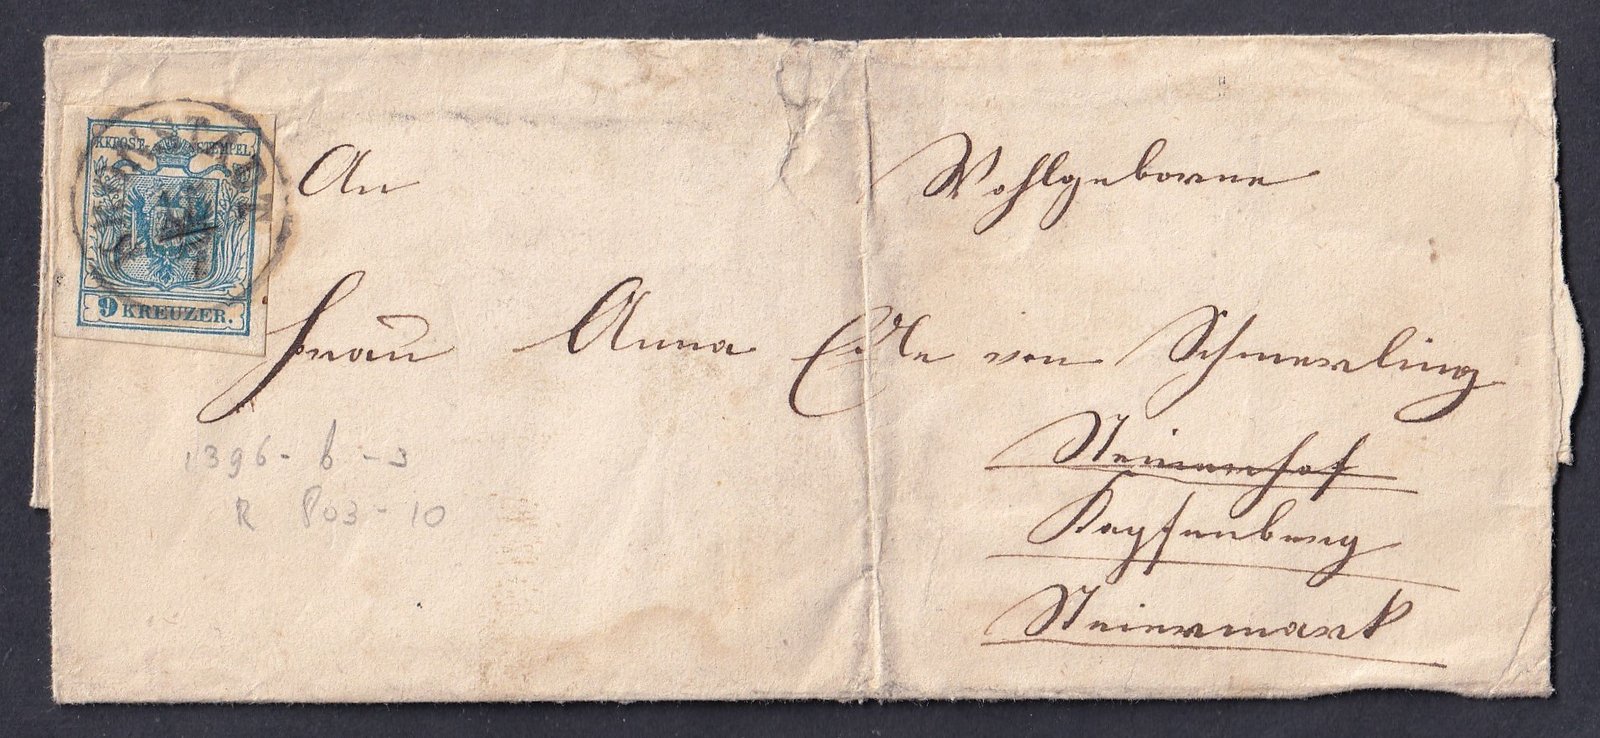 KKPOST-STEMPEL
9 KREUZER.
An Wohlgeborne
Frau Anna Edle von Schmerling
Steinerhof
Kapfenberg
Steiermark
1396 - b - 3
R 803 - 10